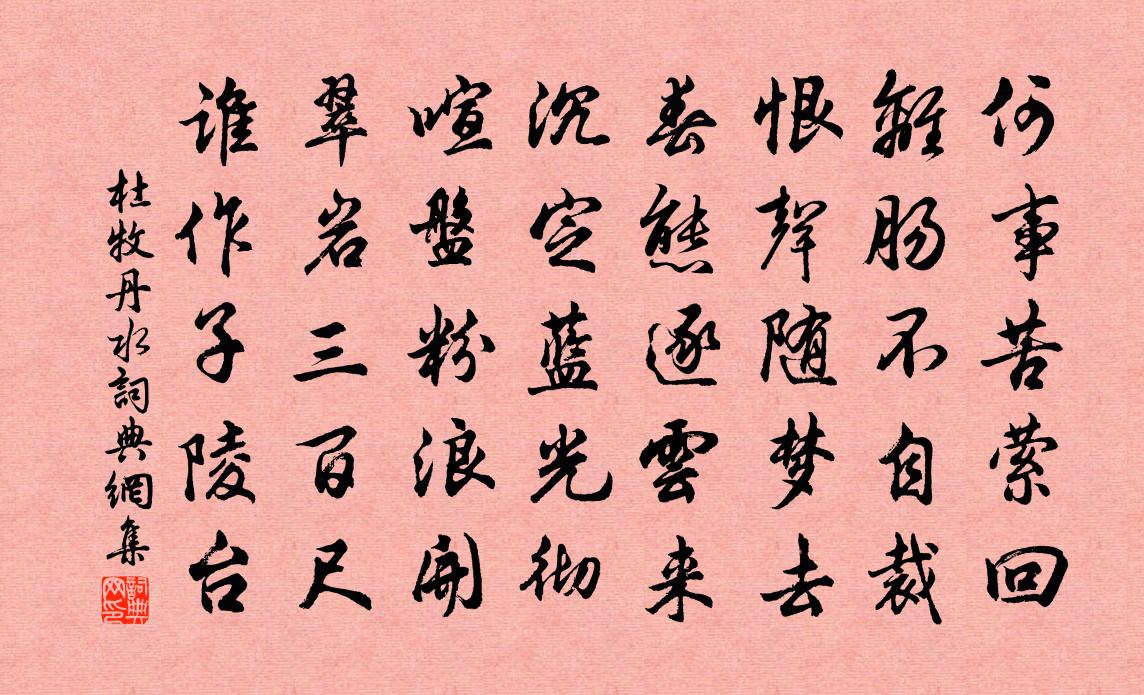 何事苦萦回
離肠不自裁
恨聲随梦去
春態逐雲来
沉定藍光彻
喧盤粉浪開
翠岩三百尺
誰作子陵台
杜牧丹水詞典網集
詞典网印